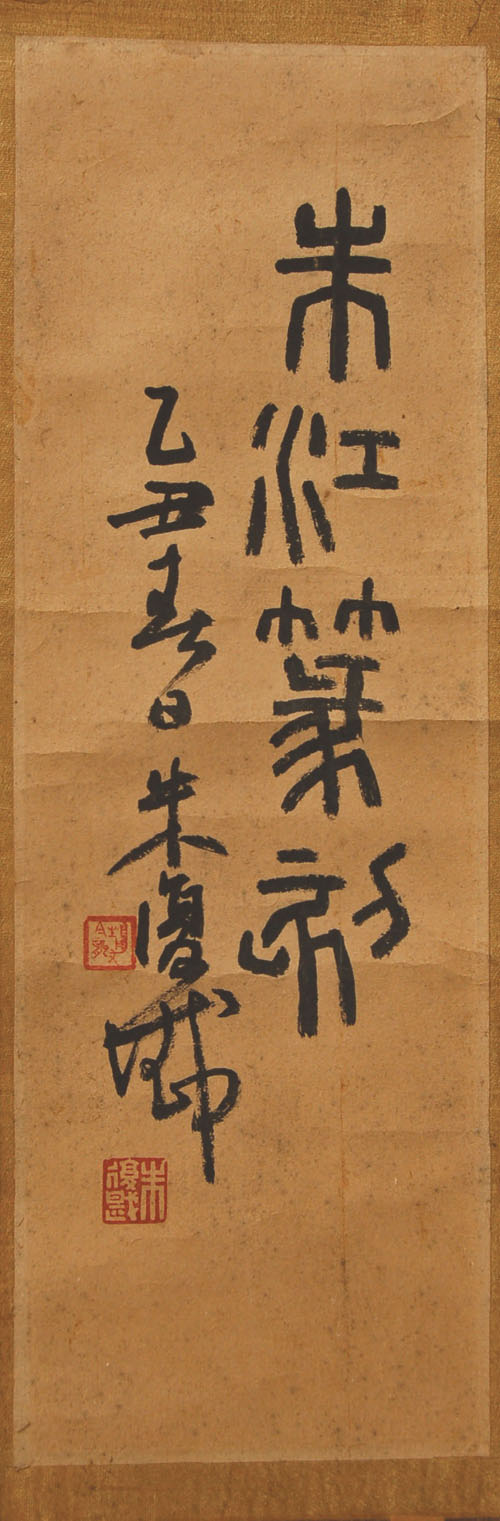 朱江篆刻
乙丑春日朱復戡
朱復戡